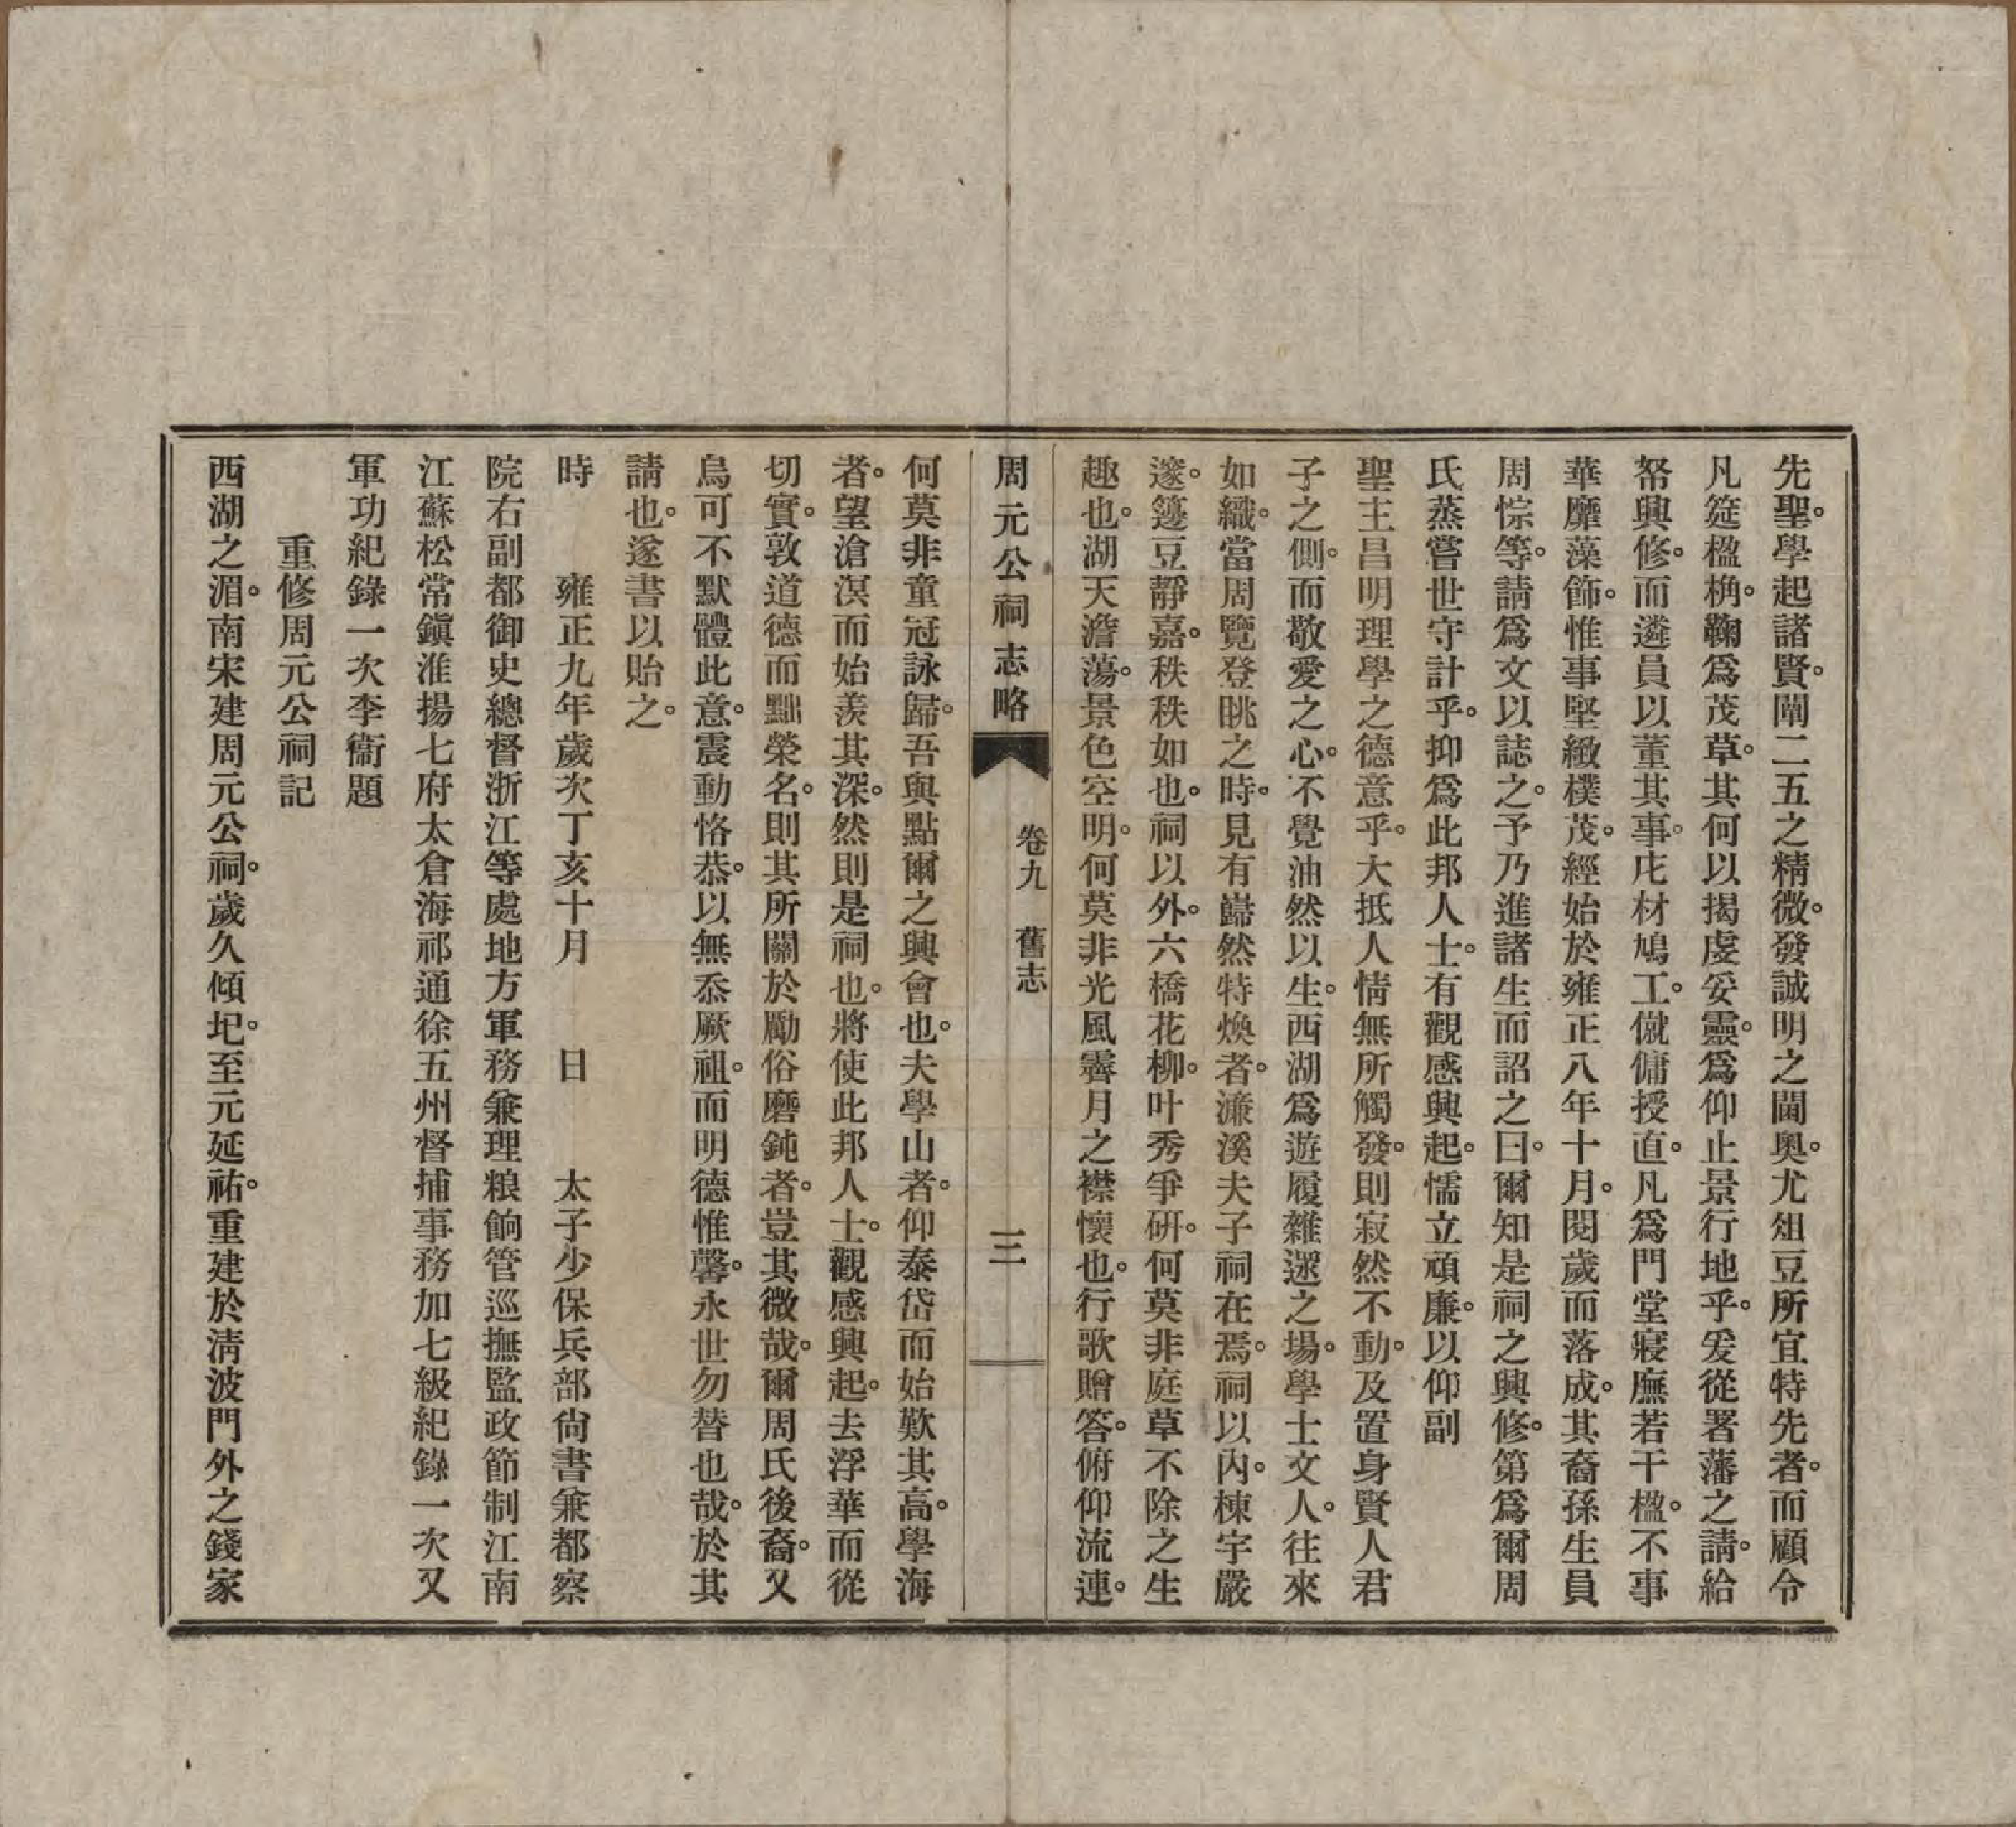 先聖。學起諸賢。闡二五之精微。發誠明之閫奧。尤俎豆所宜特先者。而顧令
凡筵楹桷。鞠爲茂草。其何以揭虔妥靈。爲仰止景行地乎。爰從署藩之請。給
帑興修。而遴員以董其事。庀材鳩工。僦傭授直。凡爲門堂寢廡若干楹。不事
華靡藻飾。惟事堅緻樸茂。經始於雍正八年十月。閱歲而落成。其裔孫生員
周悰等。請爲文以誌之。予乃進諸生而詔之曰。爾知是祠之興修。第爲爾周
氏蒸嘗世守計乎。抑爲此邦人士。有觀感興起。懦立頑廉。以仰副
聖主昌明理學之德意乎。大抵人情無所觸發。則寂然不動。及置身賢人君
子之側。而敬愛之心。不覺油然以生。西湖爲遊履雜遝之場。學士文人。往來
如織。當周覽登眺之時。見有巋然特煥者。濂溪夫子祠在焉。祠以內。棟宇嚴
邃。籩豆靜嘉。秩秩如也。祠以外。六橋花柳。叶秀爭研。何莫非庭草不除之生
趣也。湖天澹蕩。景色空明。何莫非光風霽月之襟懷也。行歌贈答。俯仰流連。
周元公祠志略　卷九　舊志　三
何莫非童冠詠歸。吾與點爾之興會也。夫學山者。仰泰岱而始歎其高。學海
者。望滄溟而始羨其深。然則是祠也。將使此邦人士。觀感興起。去浮華而從
切實。敦道德而黜榮名。則其所關於勵俗磨鈍者。豈其微哉。爾周氏後裔。又
烏可不默體此意。震動恪恭。以無忝厥祖。而明德惟馨。永世勿替也哉。於其
請也。遂書以貽之。
時　　雍正九年歲次丁亥十月　　日　　太子少保兵部尙書兼都察
院右副都御史總督浙江等處地方軍務兼理粮餉管巡撫監政節制江南
江蘇松常鎭淮揚七府太倉海祁通徐五州督捕事務加七級紀錄一次又
軍功紀錄一次李衞題
重修周元公祠記
西湖之湄。南宋建周元公祠。歲久傾圯。至元延祐。重建於清波門外之錢家